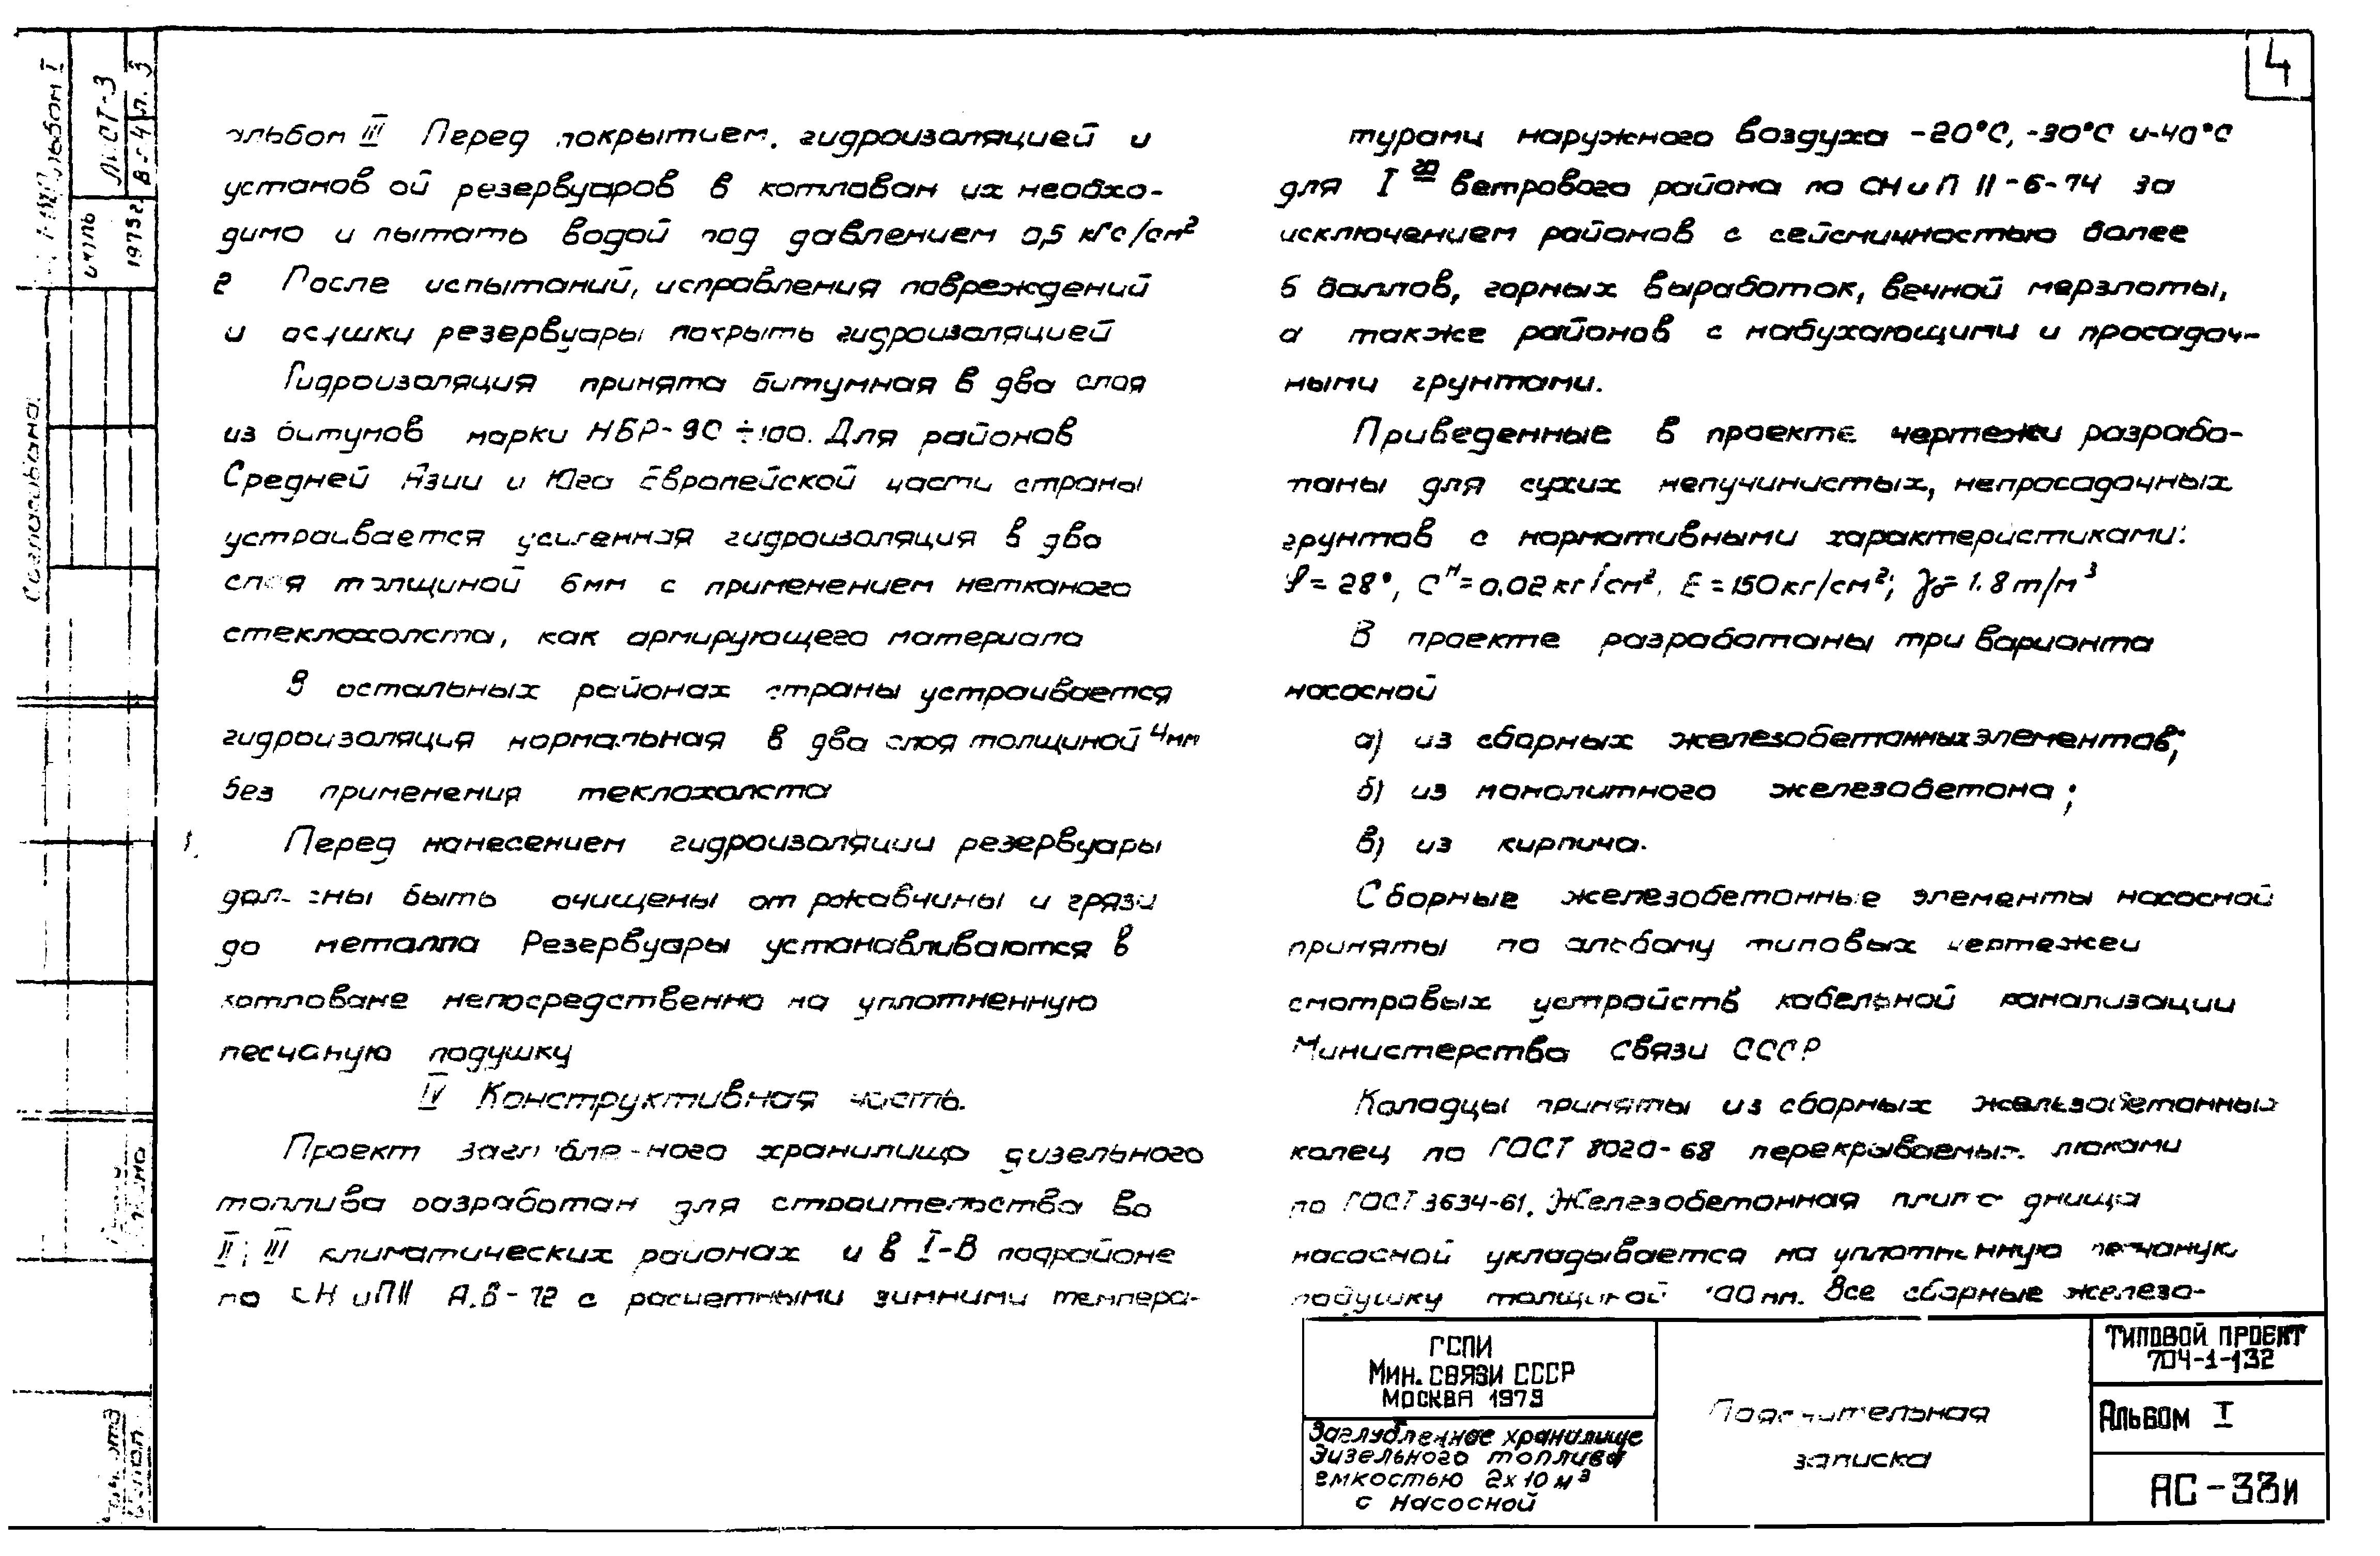 4
альбом III Перед покрытием гидроизоляцией и
установ ой резервуаров в котлован их необхо-
димо и пытать водой под давлением 0,5 кгс/см²
2 После испытаний, исправления повреждений
и осушки резервуары покрыть гидроизоляцией
Гидроизоляция принята битумная в два слоя
из битумов марки НБР-90÷100. Для районов
Средней Азии и Юга Европейской части страны
устраивается усиленная гидроизоляция в два
слоя толщиной 6мм с применением нетканого
стеклохолста, как армирующего материала
В остальных районах страны устраивается
гидроизоляция нормальная в два слоя толщиной 4мм
без применения теклохолста
Перед нанесением гидроизоляции резервуары
должны быть очищены от ржавчины и грязи
до металла Резервуары устанавливаются в
котловане непосредственно на уплотненную
песчаную подушку
IV Конструктивная часть.
Проект заглубленного хранилища дизельного
топлива разработан для строительства во
II; III климатических районах и в I-В подрайоне
по СНиПII А.6-72 с расчетными зимними темпера-
турами наружного воздуха -20°С, -30°С и-40°С
для I го ветрового района по СНиП II-6-74 за
исключением районов с сейсмичностью более
6 баллов, горных выработок, вечной мерзлоты,
а также районов с набухающими и просадоч-
ными грунтами.
Приведенные в проекте чертежи разрабо-
таны для сухих непучинистых, непросадочных
грунтов с нормативными характеристиками:
φ=28°, Cᴴ=0.02кг/см², E=150кг/см²; γо=1.8т/м³
В проекте разработаны три варианта
насосной
а) из сборных железобетонных элементов;
б) из монолитного железобетона;
в) из кирпича.
Сборные железобетонные элементы насосной
приняты по альбому типовых чертежей
смотровых устройств кабельной канализации
Министерства связи СССР
Колодцы приняты из сборных железобетонных
колец по ГОСТ 8020-68 перекрываемых люками
по ГОСТ 3634-61. Железобетонная плита днища
насосной укладывается на уплотненную песчаную
подушку толщиной 100мм. Все сборные железо-
ГСПИ
Мин. связи СССР
Москва 1979
Заглубленное хранилище
дизельного топлива
емкостью 2х10м³
с насосной
Пояснительная
записка
Типовой проект
704-1-132
Альбом I
АС-33и
Альбом I
Лист-3
В-4 л. 3
1979г
Согласовано